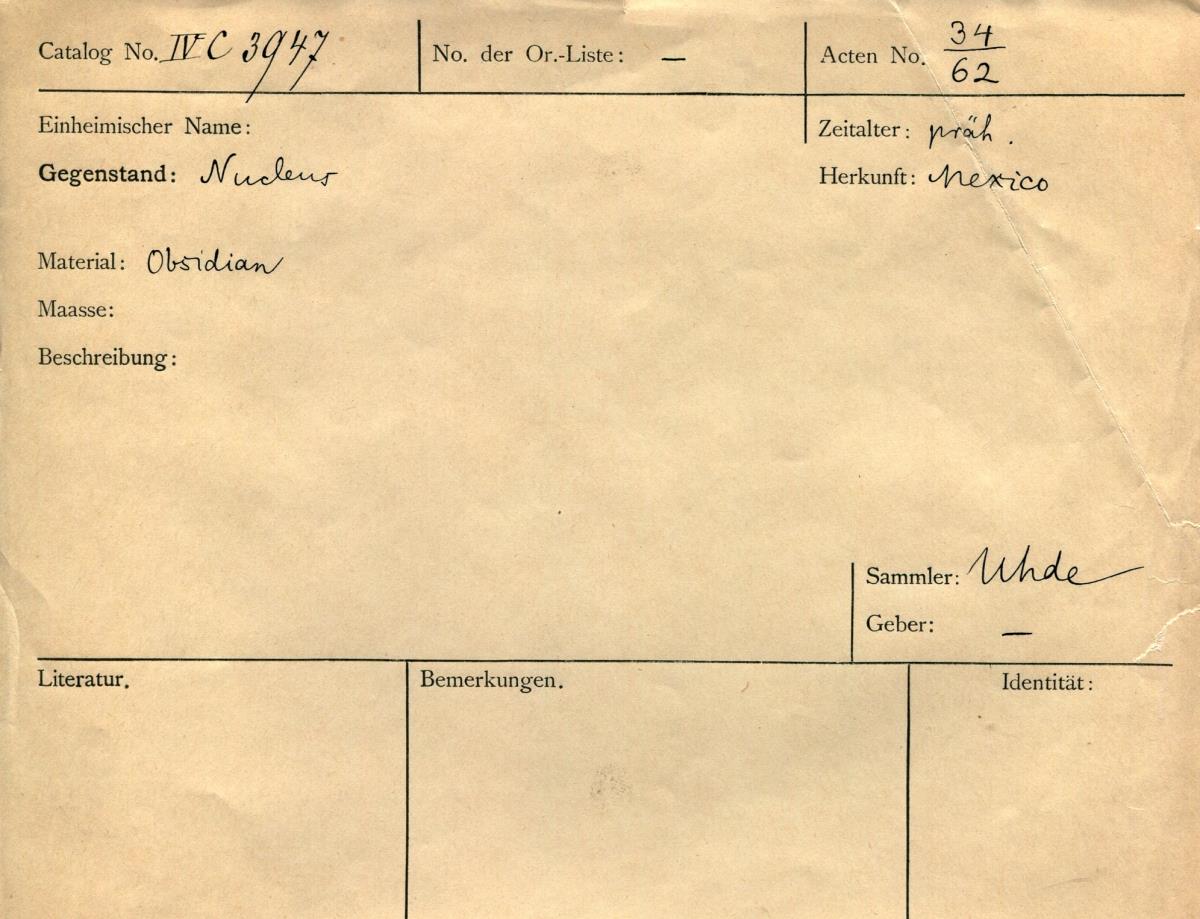 Catalog No. IV C 3947 No. der Or.-Liste: — Acten No. 34/62
Einheimischer Name: Zeitalter: präh.
Gegenstand: Nucleus Herkunft: Mexico
Material: Obsidian
Maasse:
Beschreibung:
Sammler: Uhde
Geber: —
Literatur. Bemerkungen. Identität: